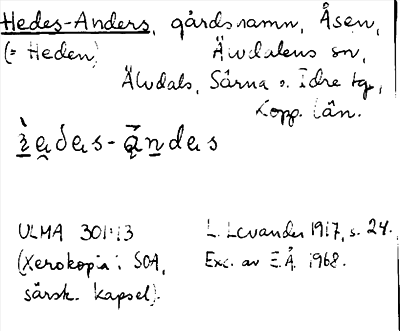 Hedes-Anders, gårdsnamn, Åsen,
(= Heden) Älvdalens sn,
Älvdals, Särna o. Idre tg,
Kopp. län.
ULMA 301:13 L. Levander 1917, s. 24.
(Xerokopia i SOA, Exc. av E.Å. 1968.
särsk. kapsel).